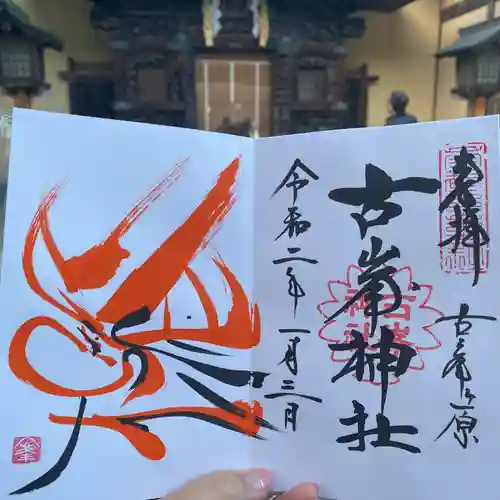 奉拝
古峯ヶ原
古峯神社
令和二年一月三日